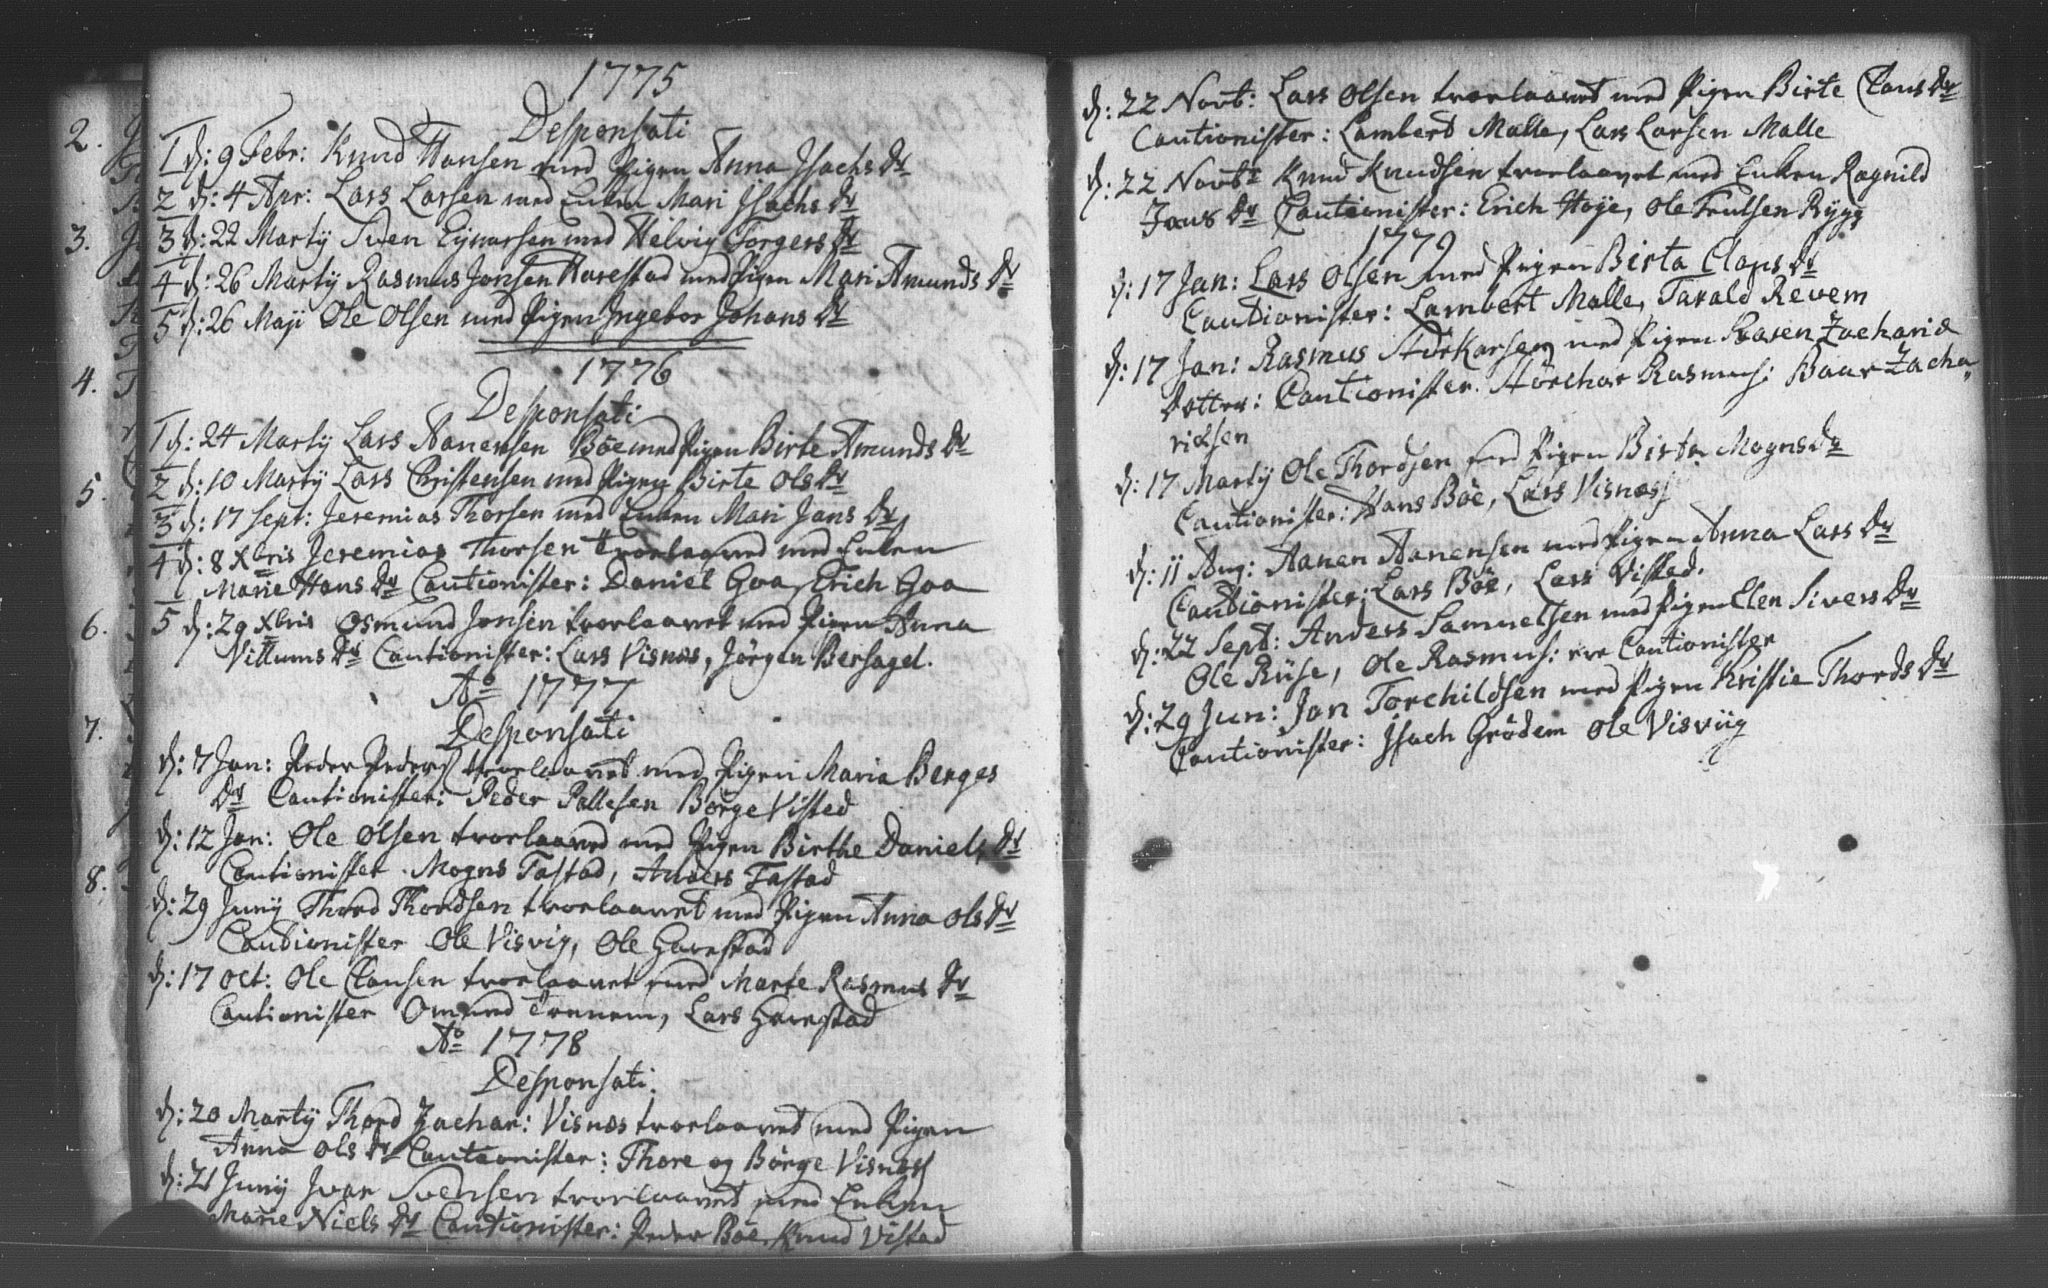 1775
Desponsati
1 d: 9 Febr: Knud Hansen med Pigen Anna Jsachs Dr
2 d: 4 Apr: Lars Larsen med Enken Mari Jsachs Dr
3 d: 22 Martÿ Sven Ejnarsen med Helvig Torgers Dr
4 d: 26 Martÿ Rasmus Jonsen Harestad med Pigen Mari Amunds Dr
5 d: 26 Maji Ole Olsen med Pigen Jngebor Johans Dr
1776
Desponsati
1 d: 24 Martÿ Lars Aanensen Böe med Pigen Birte Amunds Dr
2 d: 10 Martÿ Lars Christensen med Pigen Birte Ols Dr
3 d: 17 Sept: Jeremias Thorsen med Enken Mari Jans Dr
4 d: 8 Xbris Jeremias Thorsen troelaaved med Enken
Marie Hans Dr Cautionister: Daniel Goa, Erich Goa
5 d: 29 Xbris Osmund Jonsen troelaavet med Pigen Anna
Villums Dr Cautionister: Lars Visnes, Jörgen Bersagel.
Ao 1777
Desponsati
d: 7 Jan: Peder Peders troelaavet med Pigen Maria Berges
Dr Cautionister: Peder Pallesen Börge Visted
d: 12 Jan: Ole Olsen troelaaved med Pigen Birthe Daniels Dr
Cautionister. Mogns Tastad, Anders Tastad
d: 29 Junÿ Thord Thordsen troelaavet med Pigen Anna Ols Dr
Cautionister Ole Visvig, Ole Harestad
d: 17 Oct: Ole Clausen troelaavet med Marte Rasmus Dr
Cautionister Omund Lars Harestad
Ao 1778
Desponsati.
d: 20 Martÿ Thord Zachar: Visnes troelaavet med Pigen
Anna Ols Dr Cautionister: Thore og Börge Visnes
d: 21 Junÿ Jvar Svensen troelaavet med Enken
Marie Niels Dr Cautionister: Peder Böe, Knud Vistad
d: 22 Novb: Lars Olsen troelaavet med Pigen Birte Claus Dr
Cautionister: Lambert Malle, Lars Larsen Malle
d: 22 Novbr Knud Knudsen troelaavet med Enken Ragnild
Jans Dr Cautionister: Erich Høje, Ole Trulsen Rygg
1779
d: 17 Jan: Lars Olsen med Pigen Birta Claus Dr
Cautionister: Lambert Malle, Tarald Revem
d: 17 Jan: Rasmus Störkarsen med Pigen Maren Zacharie
Dotter: Cautionister. Störchar Rasmus: Baar Zacha„
riæsen
d: 17 Martÿ Ole Thordsen med Pigen Birta Mogns Dr
Cautionister: Hans Böe, Lars Visnes
d: 11 Aug: Aanen Aanensen med Pigen Anna Lars Dr
Cautionister: Lars Böe, Lars Visted.
d: 22 Sept: Anders Samuelsen med Pigen Elen Sivers Dr
Ole Rüse, Ole Rasmus: ere Cautionister
d: 29 Jun: Jan Torchildsen med Pigen Kristie Thords Dr
Cautionister: Jsach Grödem Ole Visviig
2.
3.
4.
5.
6.
7.
8.